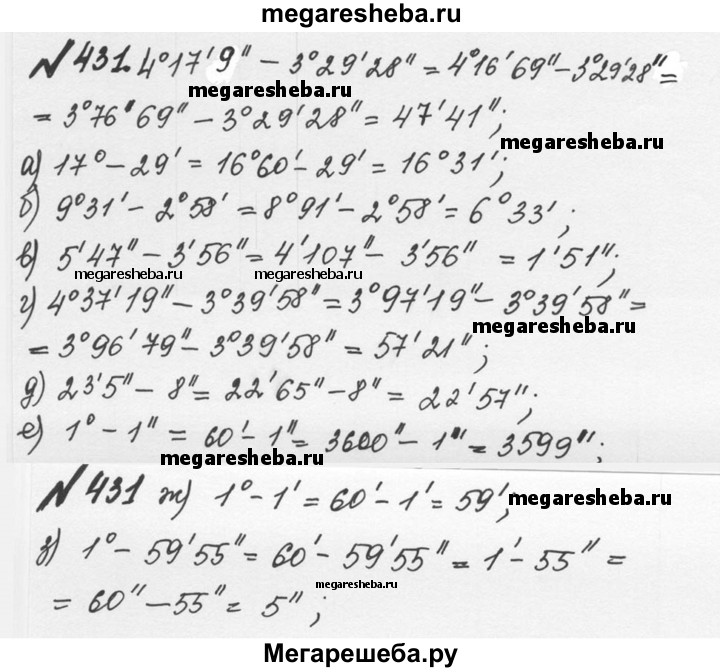 megaresheba.ru
№431. 4°17'9" − 3°29'28" = 4°16'69" − 3°29'28" =
megaresheba.ru
= 3°76'69" − 3°29'28" = 47'41";
megaresheba.ru
а) 17° − 29' = 16°60' − 29' = 16°31';
б) 9°31' − 2°58' = 8°91' − 2°58' = 6°33';
в) 5'47" − 3'56" = 4'107" − 3'56" = 1'51";
megaresheba.ru megaresheba.ru
г) 4°37'19" − 3°39'58" = 3°97'19" − 3°39'58" =
megaresheba.ru
= 3°96'79" − 3°39'58" = 57'21";
д) 23'5" − 8" = 22'65" − 8" = 22'57";
е) 1° − 1" = 60' − 1" = 3600" − 1" = 3599";
megaresheba.ru
№431 ж) 1° − 1' = 60' − 1' = 59';
megaresheba.ru
з) 1° − 59'55" = 60' − 59'55" = 1' − 55" =
megaresheba.ru
= 60" − 55" = 5";
Мегарешеба.ру